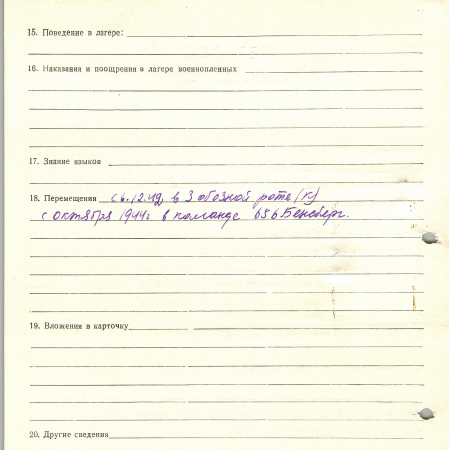 15. Поведение в лагере:
16. Наказания и поощрения в лагере военнопленных
17. Знание языков
18. Перемещения с 6.12.42, в 3 обозной роте (К)
с октября 1944г в команде 656 Бенсберг.
19. Вложения в карточку
20. Другие сведения